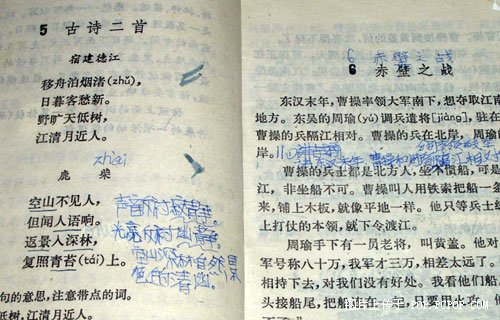 5 古诗二首
宿建德江
移舟泊烟渚(zhǔ)，
日暮客愁新。
野旷天低树，
江清月近人。
zhài
鹿柴
空山不见人，
但闻人语响。
返景入深林，
复照青苔(tái)上。
声音反衬寂静
光亮反衬幽静
空山深林自然
景色的清幽。
句的意思，注意带点的词。
低树，江清月近人。
6 赤壁之战
6 赤壁之战
东汉末年，曹操率领大军南下，想夺取江南
地方。东吴的周瑜(yú)调兵遣将[jiàng]，驻在
曹操的兵隔江相对。曹操的兵在北岸，周瑜
岸。
曹操的兵士都是北方人，坐不惯船，可是
江，非坐船不可。曹操叫人用铁索把船一条
来，铺上木板，就像平地一样。他只等兵士练
上打仗的本领，就下令渡江。
周瑜手下有一员老将，叫黄盖。他对
军号称八十万，我军才三万，相差太远了。
相持下去，对我们没有好处。我看他们船
头接船尾，把船拴在一起，只要用火攻，他